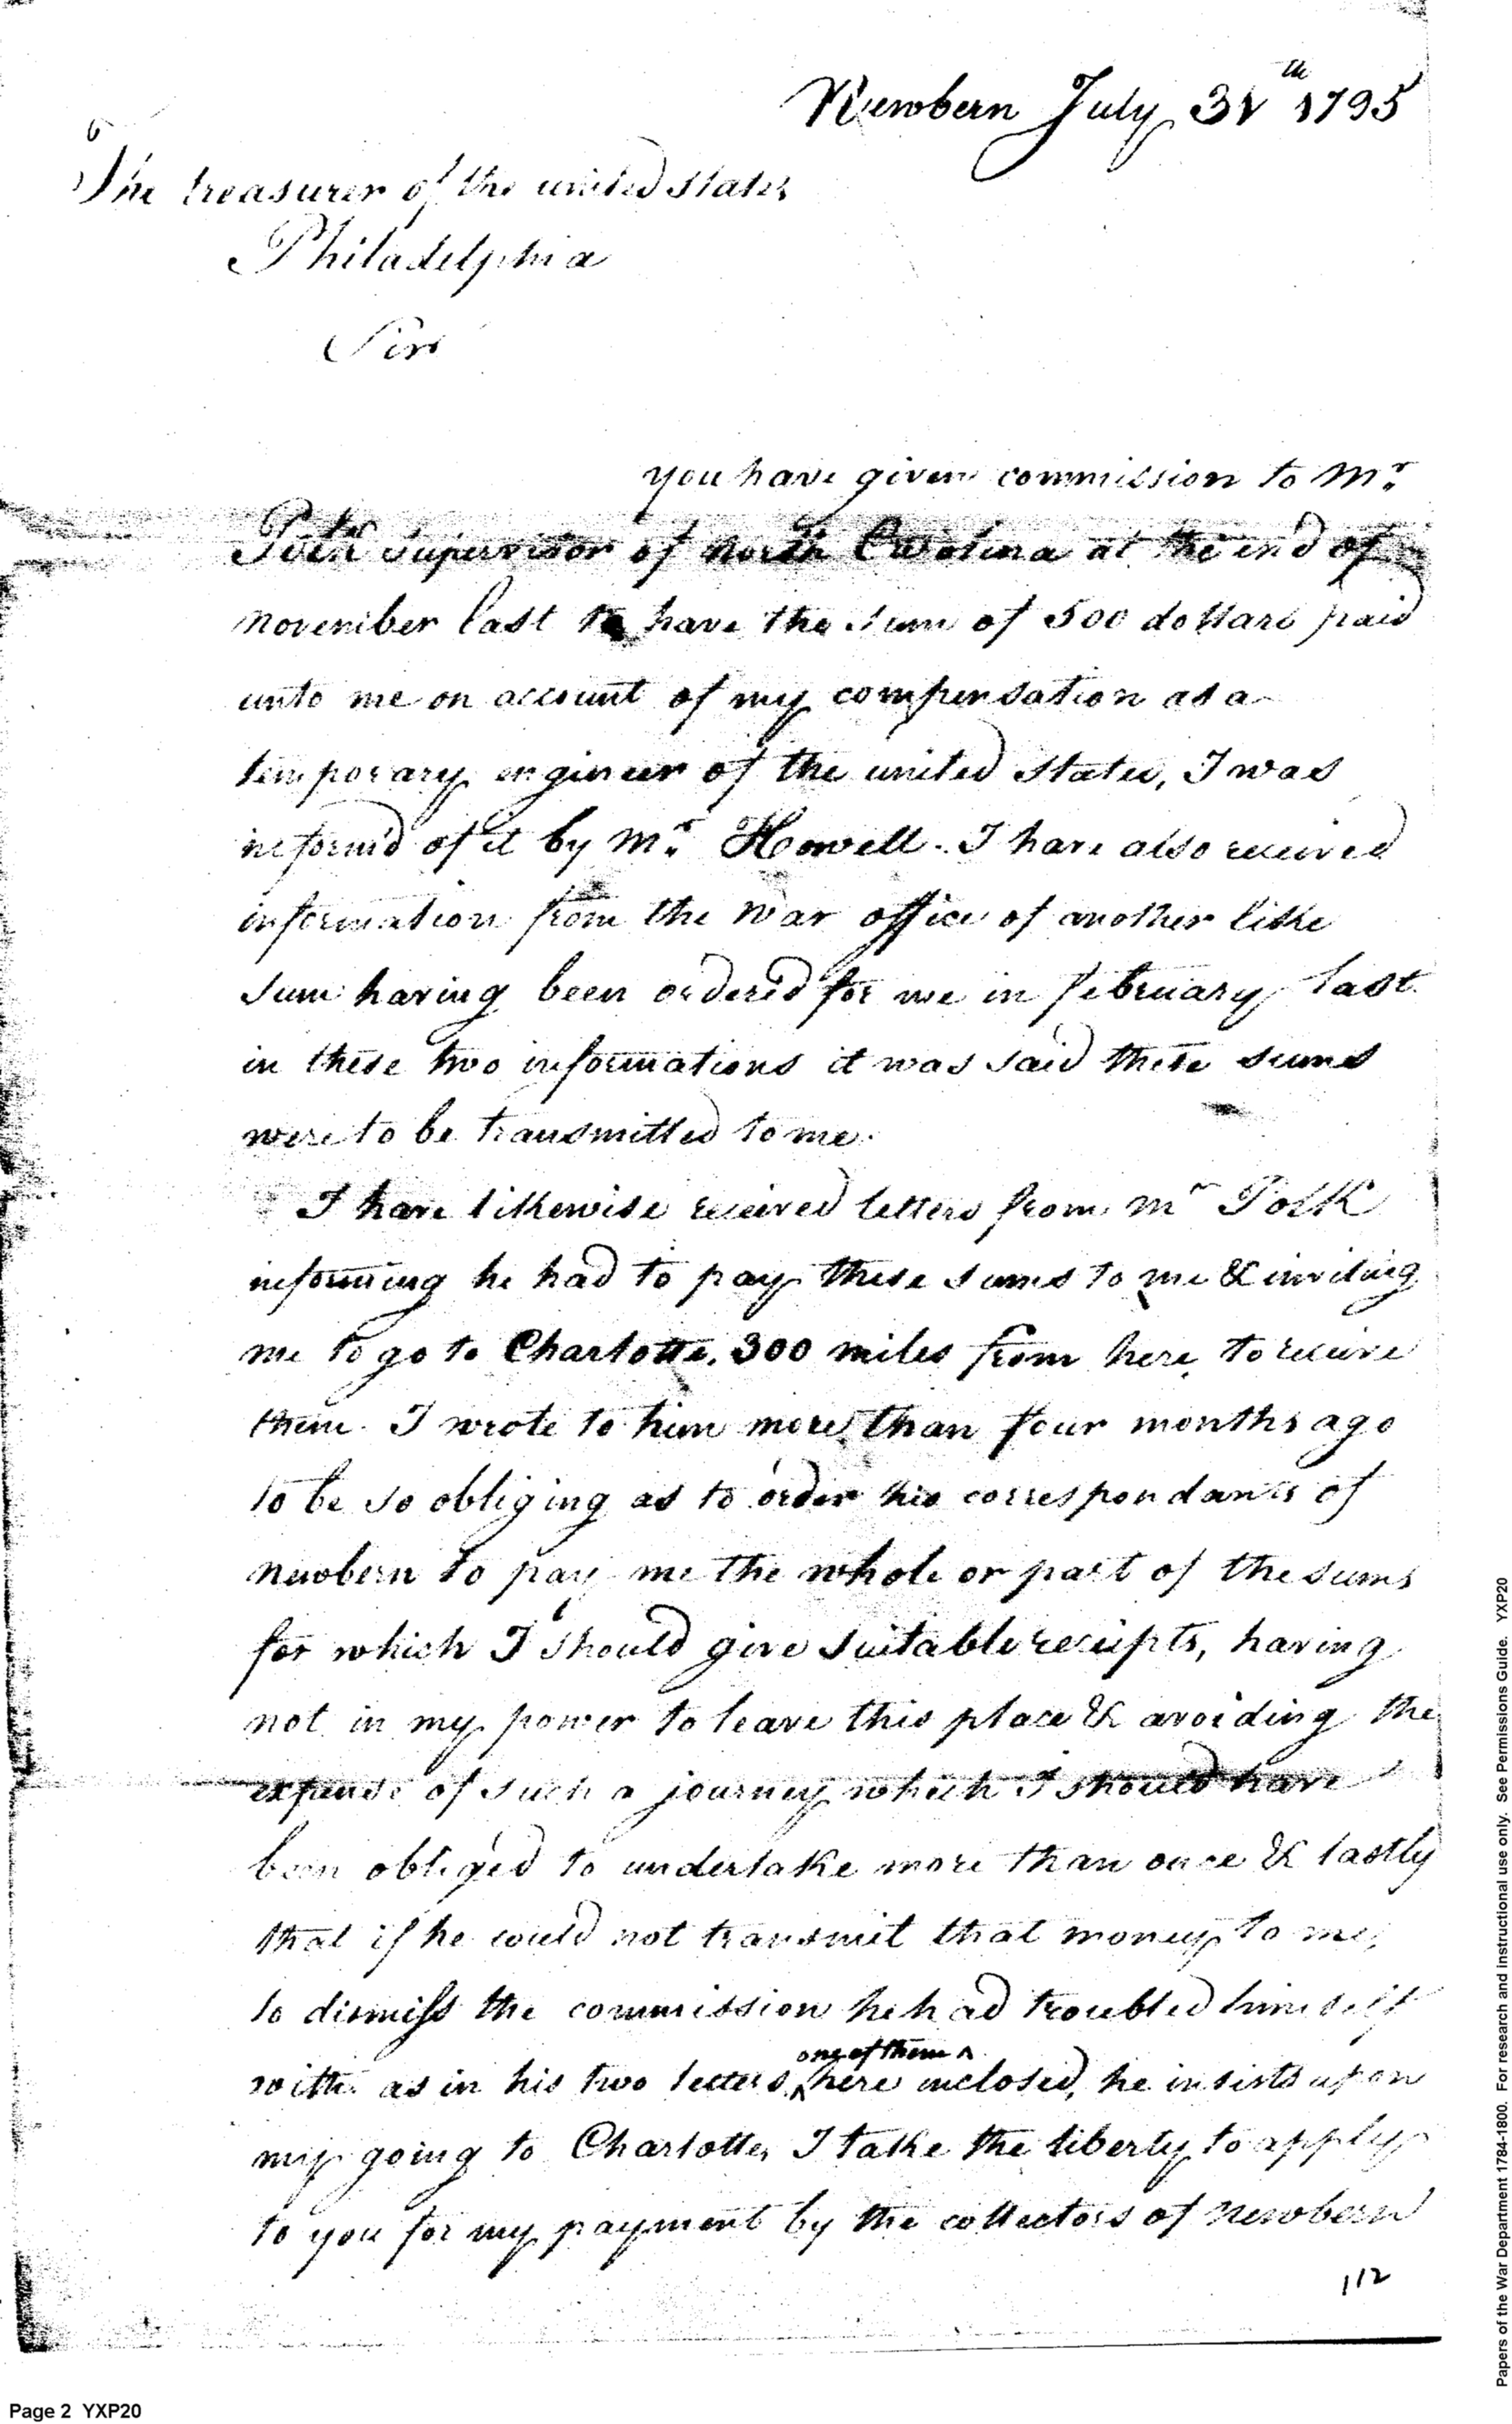 Newbern July 31th 1795
The treasurer of the united states
Philadelphia
Sir
you have given commission to Mr
Polk Supervisor of North Carolina at the end of
november last to have the sum of 500 dollars paid
unto me on account of my compensation as a
temporary engineer of the united states, I was
inform'd of it by Mr Howell. I have also received
information from the War office of another like
sum having been ordered for me in february last
in these two informations it was said these sums
were to be transmitted to me.
I have likewise received letters from mr Polk
informing he had to pay these sums to me & inviting
me to go to Charlotte, 300 miles from here, to receive
them. I wrote to him more than four months ago
to be so obliging as to order his correspondants of
newbern to pay me the whole or part of the sums
for which I should give suitable receipts, having
not in my power to leave this place & avoiding the
expense of such a journey which I should have
been obliged to undertake more than once & lastly
that if he could not transmit that money to me,
to dismiss the commission he had troubled himself
one of them
with. as in his two letters, here inclosed, he insists upon
my going to Charlotte, I take the liberty to apply
to you for my payment by the collectors of Newbern
112
Page 2 YXP20
Papers of the War Department 1784-1800. For research and instructional use only. See Permissions Guide. YXP20